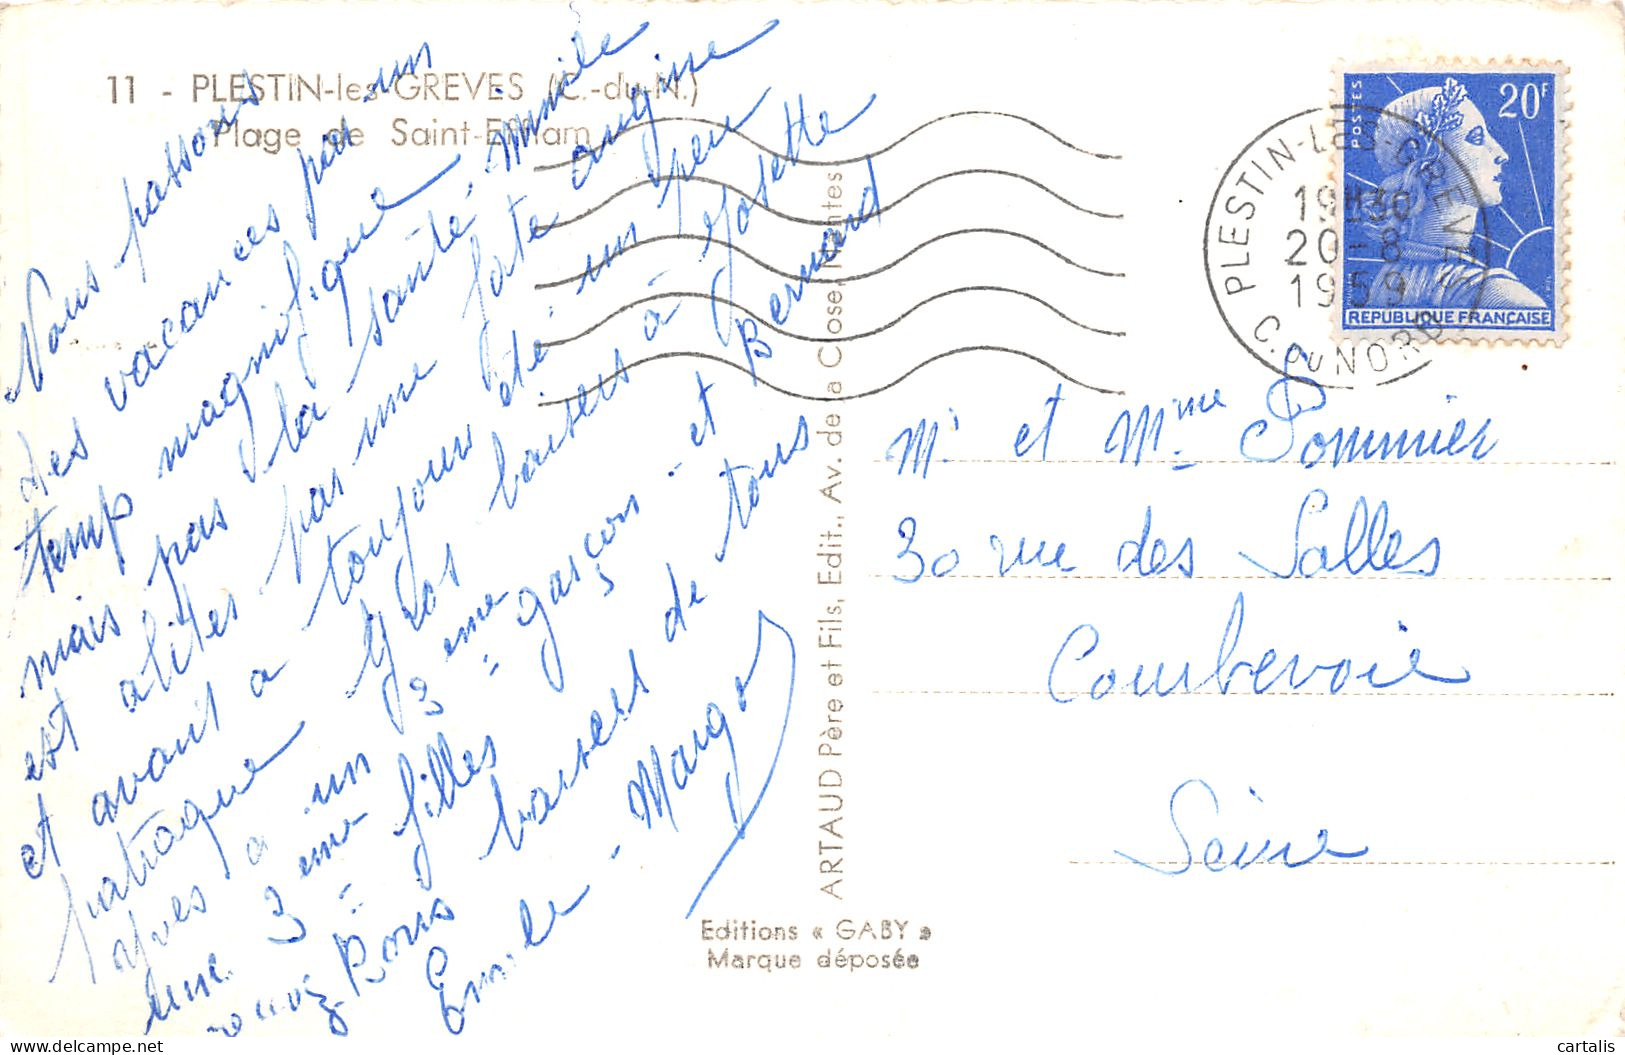 11 - PLESTIN-les-GREVES (C.-du-N.)
Plage de Saint-Efflam
Nous passons
des vacances par un
temp magnifique
mais pas la santé, Mimile
est alités par une forte angine
et avant a toujours été un peu
patraque Gros baisers à Josette
après a un 3 eme garçon - et Bernard
une 3 eme filles
Bons baisers de tous
Emile - Margot
ARTAUD Père et Fils, Edit., Av. de la Close, Nantes
Editions « GABY »
Marque déposée
PLESTIN-LES-GREVES
19H30
20-8
1959
C. DU NORD
POSTES
20F
REPUBLIQUE FRANÇAISE
Mr et Mme Pommier
30 rue des Salles
Courbevoie
Seine
cartalis